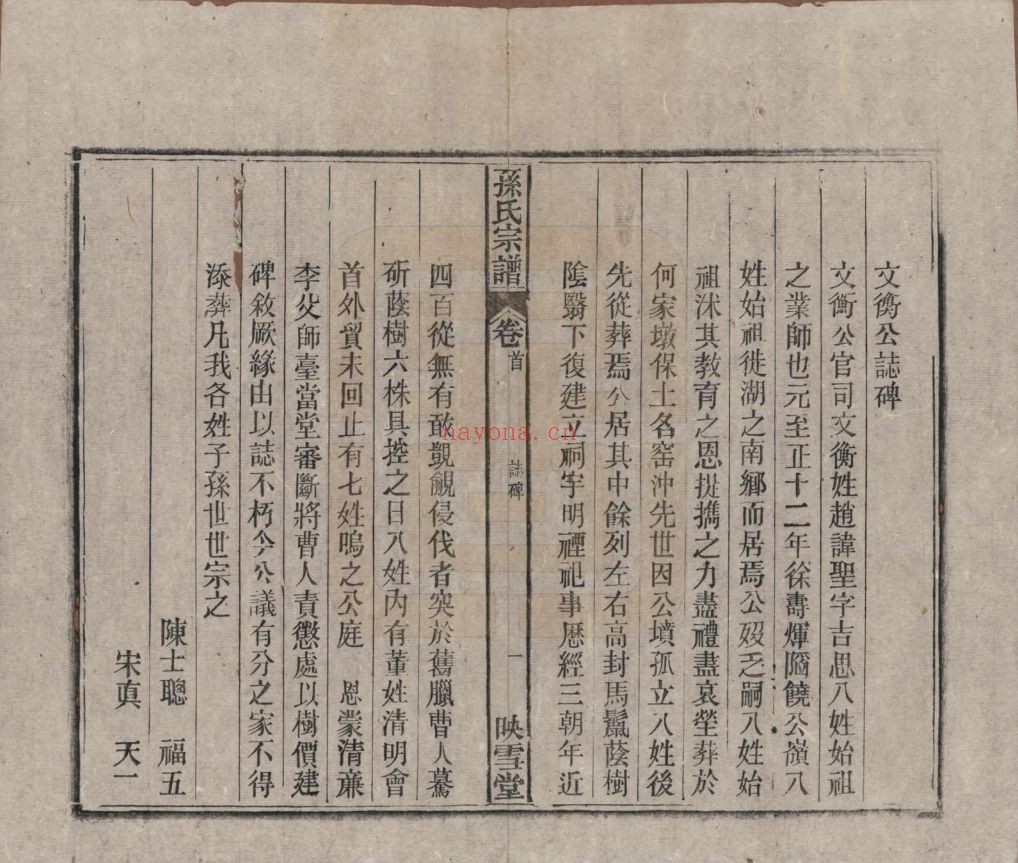 文衡公誌碑
文衡公官司文衡姓趙諱聖字吉思八姓始祖
之業師也元至正十二年徐壽煇陷饒公攜八
姓始祖徙湖之南鄉而居焉公歿乏嗣八姓始
祖沐其教育之恩提攜之力盡禮盡哀塋葬於
何家墩保土名窑沖先世因公墳孤立八姓後
先從葬焉公居其中餘列左右高封馬鬣蔭樹
陰翳下復建立祠宇明禋祀事歷經三朝年近
孫氏宗譜 卷首 誌碑 一 映雪堂
四百從無有敢覬覦侵伐者突於舊臘曹人驀
斫蔭樹六株具控之日八姓內有董姓清明會
首外貿未回止有七姓鳴之公庭 恩蒙清廉
李父師臺當堂審斷將曹人責懲處以樹價建
碑敘厥緣由以誌不朽今公議有分之家不得
添葬凡我各姓子孫世世宗之
陳士聰 福五
宋真 天一
nayona.cn